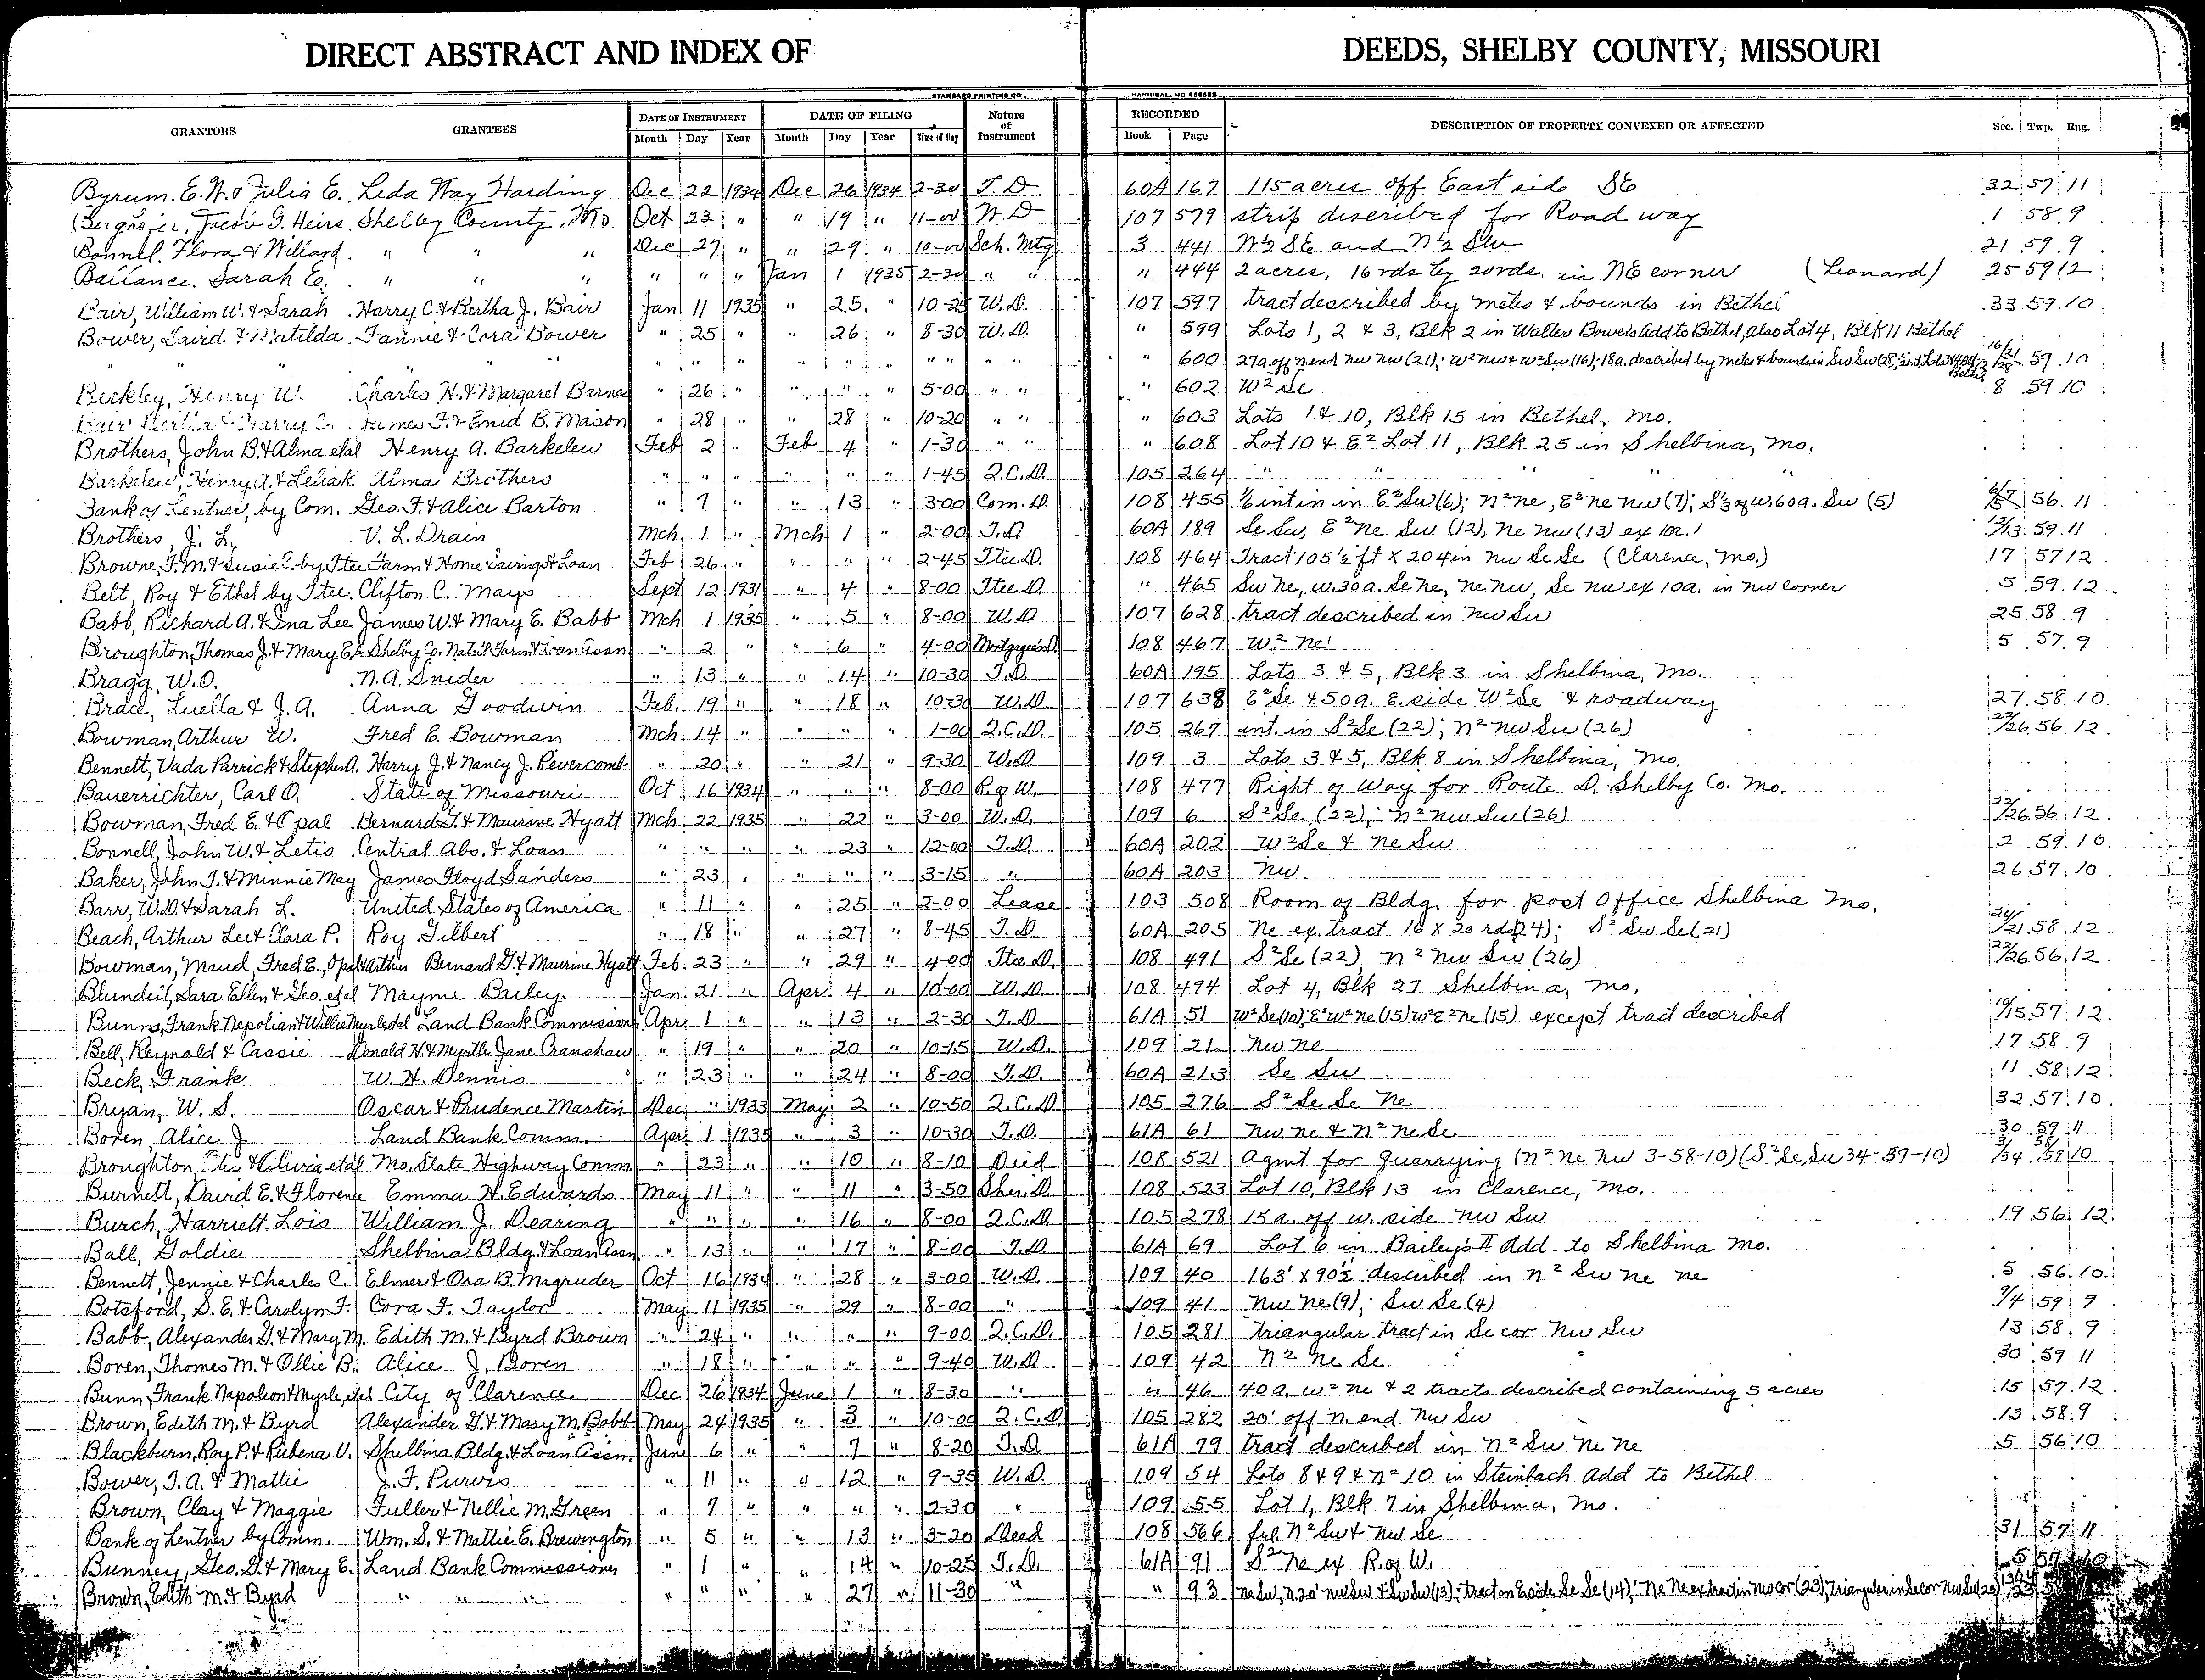 DIRECT ABSTRACT AND INDEX OF DEEDS, SHELBY COUNTY, MISSOURI
STANDARD PRINTING CO. HANNIBAL, MO
GRANTORS GRANTEES DATE OF INSTRUMENT DATE OF FILING Nature of Instrument RECORDED DESCRIPTION OF PROPERTY CONVEYED OR AFFECTED Sec. Twp. Rng.
Month Day Year Month Day Year Time of Day Book Page
Byrum. E.W. & Julia E. Leda Way Harding Dec 22 1934 Dec 26 1934 2-30 T. D 60A 167 115 acres off East side SE 32 57 11
Jacob G. Heirs Shelby County, Mo Oct 23 " " 19 " 11-00 W. D 107 579 strip described for Road way 1 58 9
Bonnel. Flora & Willard " " " Dec 27 " " 29 " 10-00 Sch. Mtg 3 441 N½ SE and N½ SW 21 59 9
Ballance. Sarah E. " " " " " " Jan 1 1935 2-30 " " " 444 2 acres, 16 rds by 20 rds. in NE corner (Leonard) 25 59 12
Bair, William W. & Sarah Harry C. & Bertha J. Bair Jan 11 1935 " 25 " 10-25 W.D. 107 597 tract described by metes & bounds in Bethel 33 59 10
Bower, Laird & Matilda Fannie & Cora Bower " 25 " " 26 " 8-30 W.D. " 599 Lots 1, 2 & 3, Blk 2 in Walter Bower's Add to Bethel, also Lot 4, Blk 11 Bethel
" " " " " " " " " " " " " " " 600 27a off n end nw nw (21); W² NW & W² Sw (16); 18a. described by metes & bounds in Sw Sw (28) Bethel 16/21/28 59 10
Beckley, Henry W. Charles H. & Margaret Barnes " 26 " " " " 5-00 " " " 602 W² Se 8 59 10
Bair Bertha & Harry C. James F. & Enid B. Mason " 28 " " 28 " 10-20 " " " 603 Lots 1 & 10, Blk 15 in Bethel, Mo.
Brothers, John B. & Alma etal Henry A. Barkelew Feb 2 " Feb 4 " 1-30 " " " 608 Lot 10 & E² Lot 11, Blk 25 in Shelbina, Mo.
Barkelew, Henry A. & Leliak. Alma Brothers " " " " " " 1-45 Q.C.D. 105 264 " " " " "
Bank of Lentner, by Com. Geo. F. & Alice Barton " 7 " " 13 " 3-00 Com. D. 108 455 1/6 int in in E² Sw (6); n² ne, E² ne nw (7); S⅓ of w. 60a. Sw (5) 6/7/5 56 11
Brothers, J. L. V. L. Drain Mch. 1 " Mch 1 " 2-00 T.D 60A 189 Se Sw, E² Ne Sw (12), Ne nw (13) ex 10a. 12/13 59 11
Browne, F.M. & Susie C. by Ttee Farm & Home Savings & Loan Feb 26 " " " " 2-45 Ttee D. 108 464 Tract 105½ ft X 204 in nw Se Se (Clarence, Mo.) 17 57 12
Belt, Roy & Ethel by Ttee. Clifton C. Mays Sept 12 1931 " 4 " 8-00 Ttee D. " 465 Sw ne, w. 30 a. Se ne, ne nw, Se nw ex 10a. in nw corner 5 59 12
Babb, Richard A. & Ina Lee James W. & Mary E. Babb Mch 1 1935 " 5 " 8-00 W.D 107 628 tract described in nw Sw 25 58 9
Broughton, Thomas J. & Mary E. Shelby Co. Nat'l Farm & Loan Assn " 2 " " 6 " 4-00 Mortgagee's D. 108 467 W² ne 5 57 9
Bragg, W.O. N.A. Snider " 13 " " 14 " 10-30 T.D 60A 195 Lots 3 & 5, Blk 3 in Shelbina, Mo.
Brace, Luella & J. A. Anna Goodwin Feb. 19 " " 18 " 10-30 W.D 107 638 E² Se & 50a. E. side W² Se & roadway 27 58 10
Bowman, Arthur W. Fred E. Bowman Mch 14 " " " " 1-00 Q.C.D. 105 267 int. in S² Se (22); n² nw Sw (26) 22/26 56 12
Bennett, Vada Parrick & Stephen A. Harry J. & Nancy J. Revercomb " 20 " " 21 " 9-30 W.D 109 3 Lots 3 & 5, Blk 8 in Shelbina, Mo.
Bauerrichter, Carl O. State of Missouri Oct 16 1934 " " " 8-00 R. of W. 108 477 Right of Way for Route D. Shelby Co. Mo.
Bowman, Fred E. & Opal Bernard G. & Maurine Hyatt Mch 22 1935 " 22 " 3-00 W.D. 109 6 S² Se (22); n² nw Sw (26) 22/26 56 12
Bonnell, John W. & Letis Central Abs. & Loan " " " " 23 " 12-00 T.D 60A 202 W² Se & ne Sw 2 59 10
Baker, John T. & Minnie May James Floyd Sanders " 23 " " " " 3-15 " 60A 203 nw 26 57 10
Barr, W.D. & Sarah L. United States of America " 11 " " 25 " 2-00 Lease 103 508 Room of Bldg. for post Office Shelbina Mo.
Beach, Arthur Lee & Clara P. Roy Gilbert " 18 " " 27 " 8-45 T. D. 60A 205 Ne ex. tract 16 X 20 rds (24); S² Sw Se (21) 24/21 58 12
Bowman, Maud, Fred E., Opal & Arthur Bernard G. & Maurine Hyatt Feb 23 " " 29 " 4-00 Ttee D. 108 491 S² Se (22) n² nw Sw (26) 22/26 56 12
Blundell, Sara Ellen & Geo. etal Mayme Bailey Jan 21 " Apr 4 " 10-00 W.D. 108 494 Lot 4, Blk 27 Shelbina, Mo.
Bunn, Frank Nepolian & Willie Myrle etal Land Bank Commissioner Apr 1 " " 13 " 2-30 T.D 61A 51 W² Se (10); E² W² ne (15) W² E² ne (15) except tract described 10/15 57 12
Bell, Reynold & Cassie Donald H. & Myrtle Jane Cranshaw " 19 " " 20 " 10-15 W.D. 109 21 nw ne 17 58 9
Beck, Frank W. H. Dennis " 23 " " 24 " 8-00 T.D. 60A 213 Se Sw 11 58 12
Bryan, W. S. Oscar & Prudence Martin Dec " 1933 May 2 " 10-50 Q.C.D. 105 276 S² Se Se Ne 32 57 10
Boren, Alice J. Land Bank Comm. Apr 1 1935 " 3 " 10-30 T.D. 61A 61 nw ne & n² ne Se 30 59 11
Broughton, Otis & Olivia etal Mo. State Highway Comm " 23 " " 10 " 8-10 Deed 108 521 Agmt for quarrying (n² ne nw 3-58-10) (S² Se Sw 34-59-10) 3/34 58/59 10
Burnett, David E. & Florence Emma H. Edwards May 11 " " 11 " 3-50 Sher. D. 108 523 Lot 10, Blk 13 in Clarence, Mo.
Burch, Harriett Lois William J. Dearing " " " " 16 " 8-00 Q.C.D. 105 278 15 a. off w. side nw Sw 19 56 12
Ball, Goldie Shelbina Bldg. & Loan Assn " 13 " " 17 " 8-00 T.D 61A 69 Lot 6 in Bailey's II Add to Shelbina Mo.
Bennett, Jennie & Charles C. Elmer & Ora B. Magruder Oct 16 1934 " 28 " 3-00 W.D. 109 40 163' X 90½ described in n² Sw ne ne 5 56 10
Botsford, S. E. & Carolyn F. Cora F. Taylor May 11 1935 " 29 " 8-00 " 109 41 nw ne (9); Sw Se (4) 9/4 59 9
Babb, Alexander G. & Mary M. Edith M. & Byrd Brown " 24 " " " " 9-00 Q.C.D. 105 281 triangular tract in Se cor nw Sw 13 58 9
Boren, Thomas M. & Ollie B. Alice J. Boren " 18 " " " " 9-40 W.D 109 42 n² ne Se 30 59 11
Bunn, Frank Napoleon & Myrle, etal City of Clarence Dec 26 1934 June 1 " 8-30 " " 46 40 a. w² ne & 2 tracts described containing 5 acres 15 57 12
Brown, Edith M. & Byrd Alexander G. & Mary M. Babb May 24 1935 " 3 " 10-00 Q.C.D. 105 282 20' off n. end nw Sw 13 58 9
Blackburn, Roy P. & Rubena V. Shelbina Bldg. & Loan Assn. June 6 " " 7 " 8-20 T.D 61A 79 tract described in n² Sw ne ne 5 56 10
Bower, T. A. & Mattie J. F. Purvis " 11 " " 12 " 9-35 W.D. 109 54 Lots 8 & 9 & n² 10 in Steinbach Add to Bethel
Brown, Clay & Maggie Fuller & Nellie M. Green " 7 " " " " 2-30 " 109 55 Lot 1, Blk 7 in Shelbina, Mo.
Bank of Lentner by Comm. Wm. S. & Mattie E. Brewington " 5 " " 13 " 3-20 Deed 108 566 frl n² Sw & nw Se 31 57 11
Bunney, Geo. G. & Mary E. Land Bank Commissioner " 1 " " 14 " 10-25 T.D. 61A 91 S² ne ex R. of W. 5 57 10
Brown, Edith M. & Byrd " " " " " " " 27 " 11-30 " " 93 ne Sw, n 20' nw Sw & Sw Sw (13); tract on E side Se Se (14); Ne Ne ex tract in nw cor (23); triangular in Se cor nw Sw